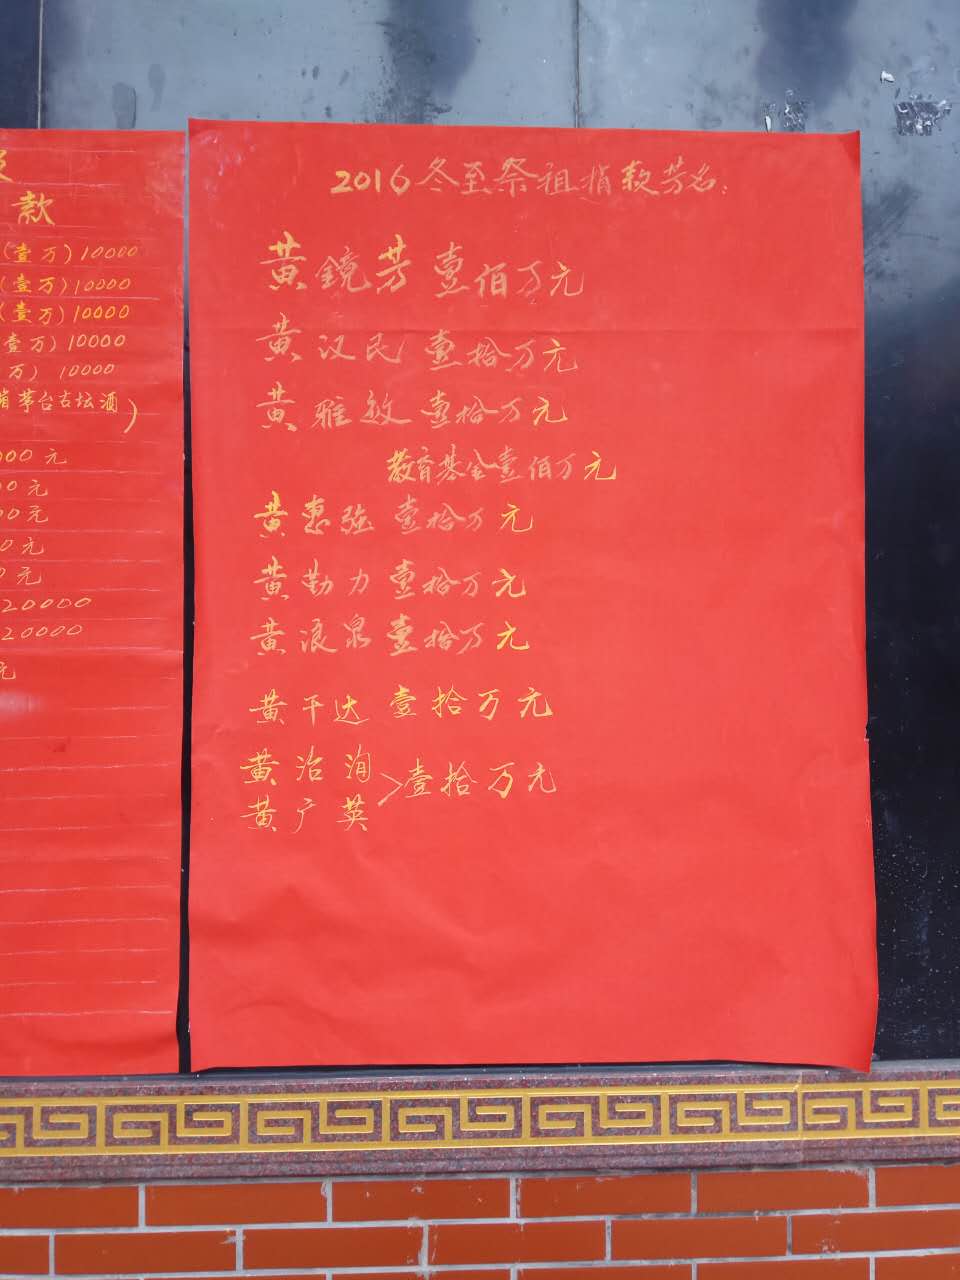 款
(壹万)10000
(壹万)10000
(壹万)10000
壹万)10000
万) 10000
茅台古坛酒)
000元
00元
00元
0元
0元
20000
20000
元
2016冬至祭祖捐款芳名:
黄鏡芳 壹佰万元
黄汉民 壹拾万元
黄雅敏 壹拾万元
教育基金壹佰万元
黄惠强 壹拾万元
黄勤力 壹拾万元
黄浪泉 壹拾万元
黄干达 壹拾万元
黄治洵
黄广英 >壹拾万元